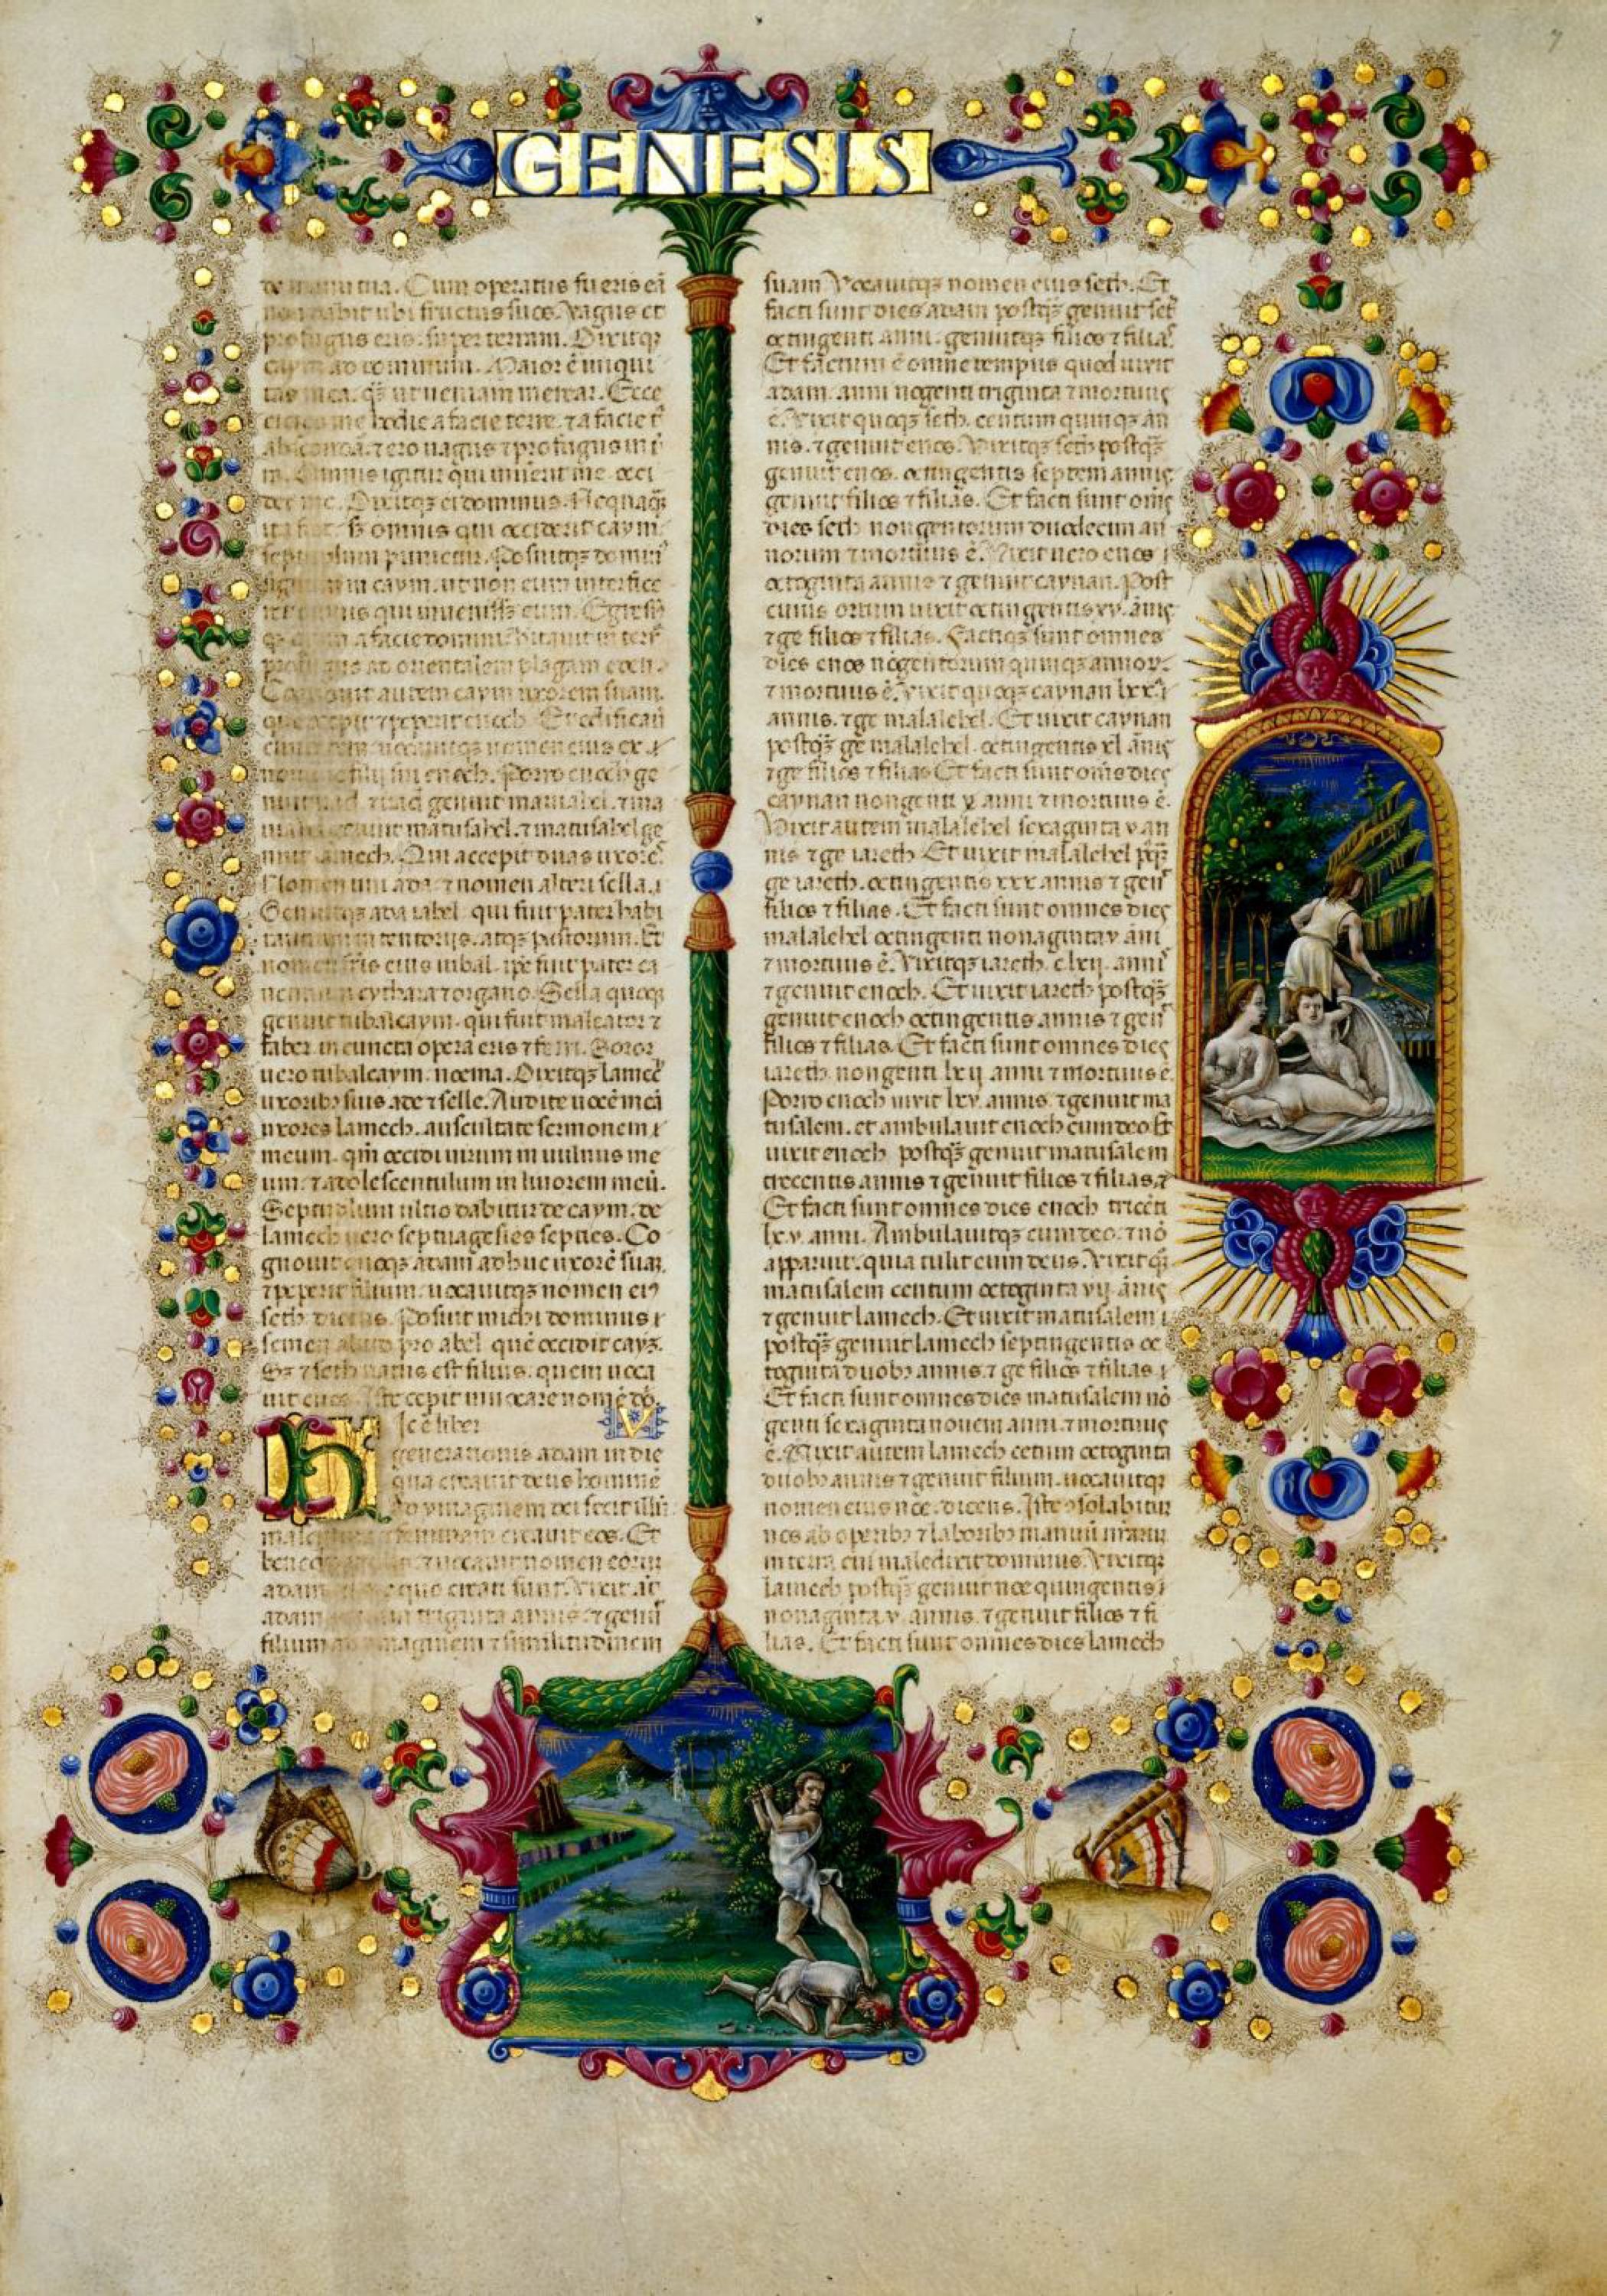 7
GENESIS
manu tua. Cum operatus fueris eã
fructus suos. Vagus et
profugus eris super terram. Dixitqꝫ
caym ad dominum. Maior ẽ iniqui
tas mea. q̃ꝫ ut ueniam merear. Ecce
eicis me hodie a facie terre. ⁊ a facie t̃
⁊ ero uagus ⁊ profugus in t̃
Omnis igitur qui inuenerit me occi
det me. Dixitqꝫ ei dominus. Nequaq̃ꝫ
ita fiet. sꝫ omnis qui occiderit caym.
septuplum punietur. Posuitqꝫ domin̄
in caym. ut non eum interfice
ret omnis qui inuenissꝫ eum. Egressꝰ
a facie domini. habitauit in terr̃
profugus ad orientalem plagam eden.
Cognouit autem caym uxorem suam.
que ⁊ peperit enoch. Et edificaũ
ciuitatem uocauitqꝫ nomen eius ex
filii sui enoch. Porro enoch ge
nuit irad. ⁊ irad genuit mauiahel. ⁊ ma
genuit matusahel. ⁊ matusahel ge
nuit lamech. Qui accepit duas uxorẽs.
Nomen uni ada. ⁊ nomen alteri sella.
Genuitqꝫ ada iabel. qui fuit pater habi
in tentoriis. atqꝫ pastorum. Et
nomen fr̃is eius iubal. ip̃e fuit pater ca
nentium cythara ⁊ organo. Sella quoqꝫ
genuit tubalcaym. qui fuit maleator ⁊
faber in cuncta opera eris ⁊ ferri. Soror
uero tubalcaym. noema. Dixitqꝫ lamec̃
uxoribꝫ suis ade ⁊ selle. Audite uocẽ meã
uxores lamech. auscultate sermonem
meum. qm̃ occidi uirum in uulnus me
um. ⁊ adolescentulum in liuorem meũ.
Septuplum ultio dabitur de caym. de
lamech uero septuagesies septies. Co
gnouit quoqꝫ adam adhuc uxorẽ suaꝫ.
⁊ peperit filium. uocauitqꝫ nomen eiꝰ
seth dicens. Posuit michi dominus
semen aliud pro abel. quẽ occidit cayꝫ.
Sꝫ ⁊ seth natus est filius. quem uoca
uit enos. Iste cepit inuocare nomẽ dõ.
H Ic ẽ liber V
generationis adam in die
qua creauit deus hominẽ
ad ymaginem dei fecit illũ.
feminam creauit eos. Et
⁊ uocauit nomen eoruꝫ
adam quo creati sunt. Vixit aũ
adam triginta annis. ⁊ genuĩ
filium ad ymaginem ⁊ similitudinem
suam. Vocauitqꝫ nomen eius seth. Et
facti sunt dies adam postq̃ꝫ genuit set̃
octingenti anni. genuitqꝫ filios ⁊ filias̃
Et factum ẽ omne tempus quod uixit
adam. anni nogenti triginta ⁊ mortuus
ẽ. Vixit quoqꝫ seth. centum quinqꝫ an
nis. ⁊ genuit enos. Vixitqꝫ seth postq̃ꝫ
genuit enos. octingentis septem annis
genuit filios ⁊ filias. Et facti sunt om̃s
dies seth nongentorum duodecim an
norum ⁊ mortuus ẽ. Vixit uero enos
octoginta annis ⁊ genuit caynan. Post
cuius ortum uixit octingentis xv. ãnis
⁊ ge filios ⁊ filias. Factiqꝫ sunt omnes
dies enos nõgentorum quinqꝫ annoꝝ.
⁊ mortuus ẽ. Vixit quoqꝫ caynan lxx
annis. ⁊ ge malalehel. Et uixit caynan
postq̃ꝫ ge malalehel. octingentis xl ãnis
⁊ ge filios ⁊ filias Et facti sunt om̃s dies
caynan nongenti x anni ⁊ mortuus ẽ.
Vixit autem malalehel sexaginta v an
nis ⁊ ge iareth Et uixit malalehel
ge iareth. octingentis xxx annis ⁊ geñ
filios ⁊ filias. Et facti sunt omnes dies
malalehel octingenti nonaginta v ãni
⁊ mortuus ẽ. Vixitqꝫ iareth. clxii. anñ
⁊ genuit enoch. Et uixit iareth postq̃ꝫ
genuit enoch octingentis annis ⁊ geñ
filios ⁊ filias. Et facti sunt omnes dies
iareth. nongenti lxii anni ⁊ mortuus ẽ.
Porro enoch uixit lxv. annis. ⁊ genuit ma
tusalem. et ambulauit enoch cum deo Et
uixit enoch postq̃ꝫ genuit matusalem
trecentis annis ⁊ genuit filios ⁊ filias. ⁊
Et facti sunt omnes dies enoch trecẽti
lx.v. anni. Ambulauitqꝫ cum deo. ⁊ nõ
apparuit. quia tulit eum deus. Vixit q̃ꝫ
matusalem centum octoginta vii ãnis
⁊ genuit lamech. Et uixit matusalem
postq̃ꝫ genuit lamech septingentis oc
toginta duobꝫ annis. ⁊ ge filios ⁊ filias
Et facti sunt omnes dies matusalem nõ
genti sexaginta nouem anni. ⁊ mortuus
ẽ. Vixit autem lamech cẽtum octoginta
duobꝫ annis ⁊ genuit filium. uocauitqꝫ
nomen eius noe. dicens. Iste ↄsolabitur
nos ab operibꝫ ⁊ laboribꝫ manuũ nr̃aruꝫ
in terra cui maledixit dominus. Vixitqꝫ
lamech postq̃ꝫ genuit noe quingentis
nonaginta v. annis. ⁊ genuit filios ⁊ fi
lias. Et facti sunt omnes dies lamech